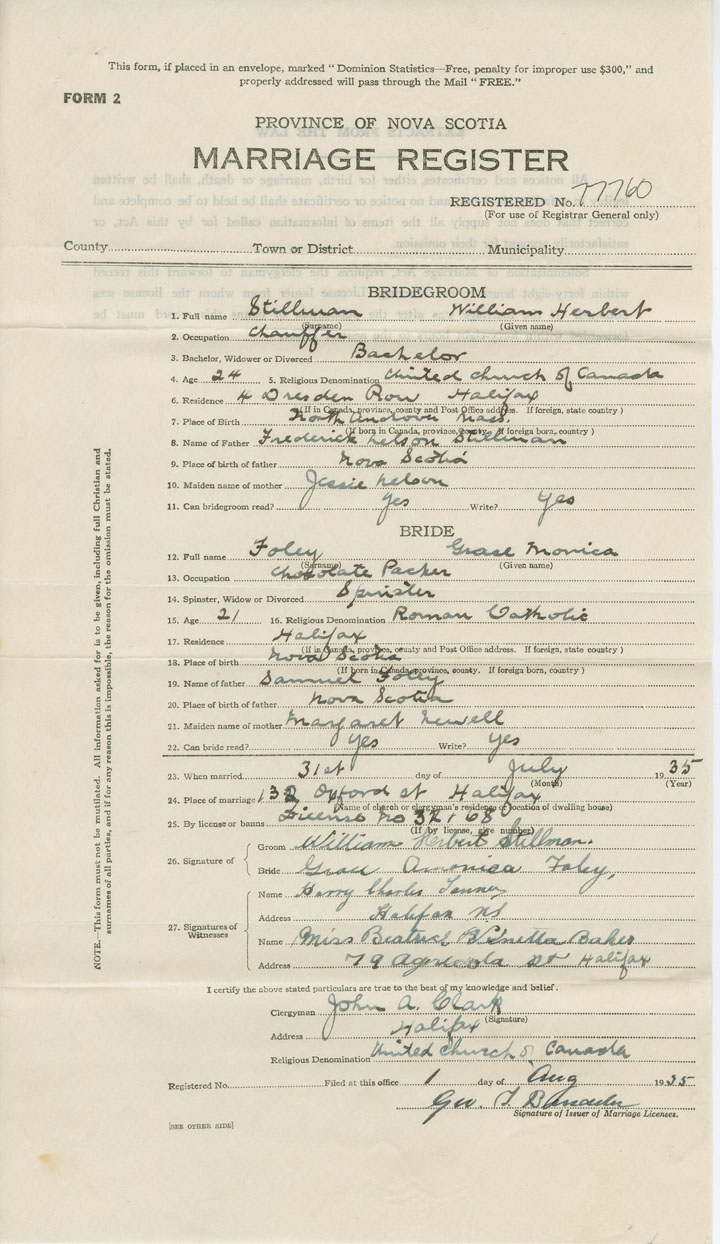 This form, if placed in an envelope, marked "Dominion Statistics—Free, penalty for improper use $300," and
properly addressed will pass through the Mail "FREE."
FORM 2
PROVINCE OF NOVA SCOTIA
MARRIAGE REGISTER
REGISTERED No. 77760
(For use of Registrar General only)
County Town or District Municipality
BRIDEGROOM
1. Full name Stillman William Herbert
(Surname) (Given name)
2. Occupation Chauffer
3. Bachelor, Widower or Divorced Bachelor
4. Age 24 5. Religious Denomination United Church of Canada
6. Residence 4 Dresden Row Halifax
(If in Canada, province, county and Post Office address. If foreign, state country)
7. Place of Birth North Andover Mass.
(If born in Canada, province, county. If foreign born, country)
8. Name of Father Frederick Nelson Stillman
9. Place of birth of father Nova Scotia
10. Maiden name of mother Jessie Nelson
11. Can bridegroom read? Yes Write? Yes
BRIDE
12. Full name Foley Grace Monica
(Surname) (Given name)
13. Occupation Chocolate Packer
14. Spinster, Widow or Divorced Spinster
15. Age 21 16. Religious Denomination Roman Catholic
17. Residence Halifax
(If in Canada, province, county and Post Office address. If foreign, state country)
18. Place of birth Nova Scotia
(If born in Canada, province, county. If foreign born, country)
19. Name of father Samuel Foley
20. Place of birth of father Nova Scotia
21. Maiden name of mother Margaret Newell
22. Can bride read? Yes Write? Yes
23. When married 31st day of July 1935
(Month) (Year)
24. Place of marriage 132 Oxford st Halifax
(Name of church or clergyman's residence or location of dwelling house)
25. By license or banns License No
(If by license, give number)
26. Signature of
Groom William Herbert Stillman.
Bride Grace Monica Foley,
27. Signatures of Witnesses
Name Harry Charles
Address Halifax NS
Name Miss Beatrice Baker
Address 79 Agricola St Halifax
I certify the above stated particulars are true to the best of my knowledge and belief.
Clergyman John A. Clark
(Signature)
Address Halifax
Religious Denomination United Church of Canada
Registered No. Filed at this office 1 day of Aug 1935
Geo.
Signature of Issuer of Marriage Licenses.
[SEE OTHER SIDE]
NOTE.—This form must not be mutilated. All information asked for is to be given, including full Christian and
surnames of all parties, and if for any reason this is impossible, the reason for the omission must be stated.